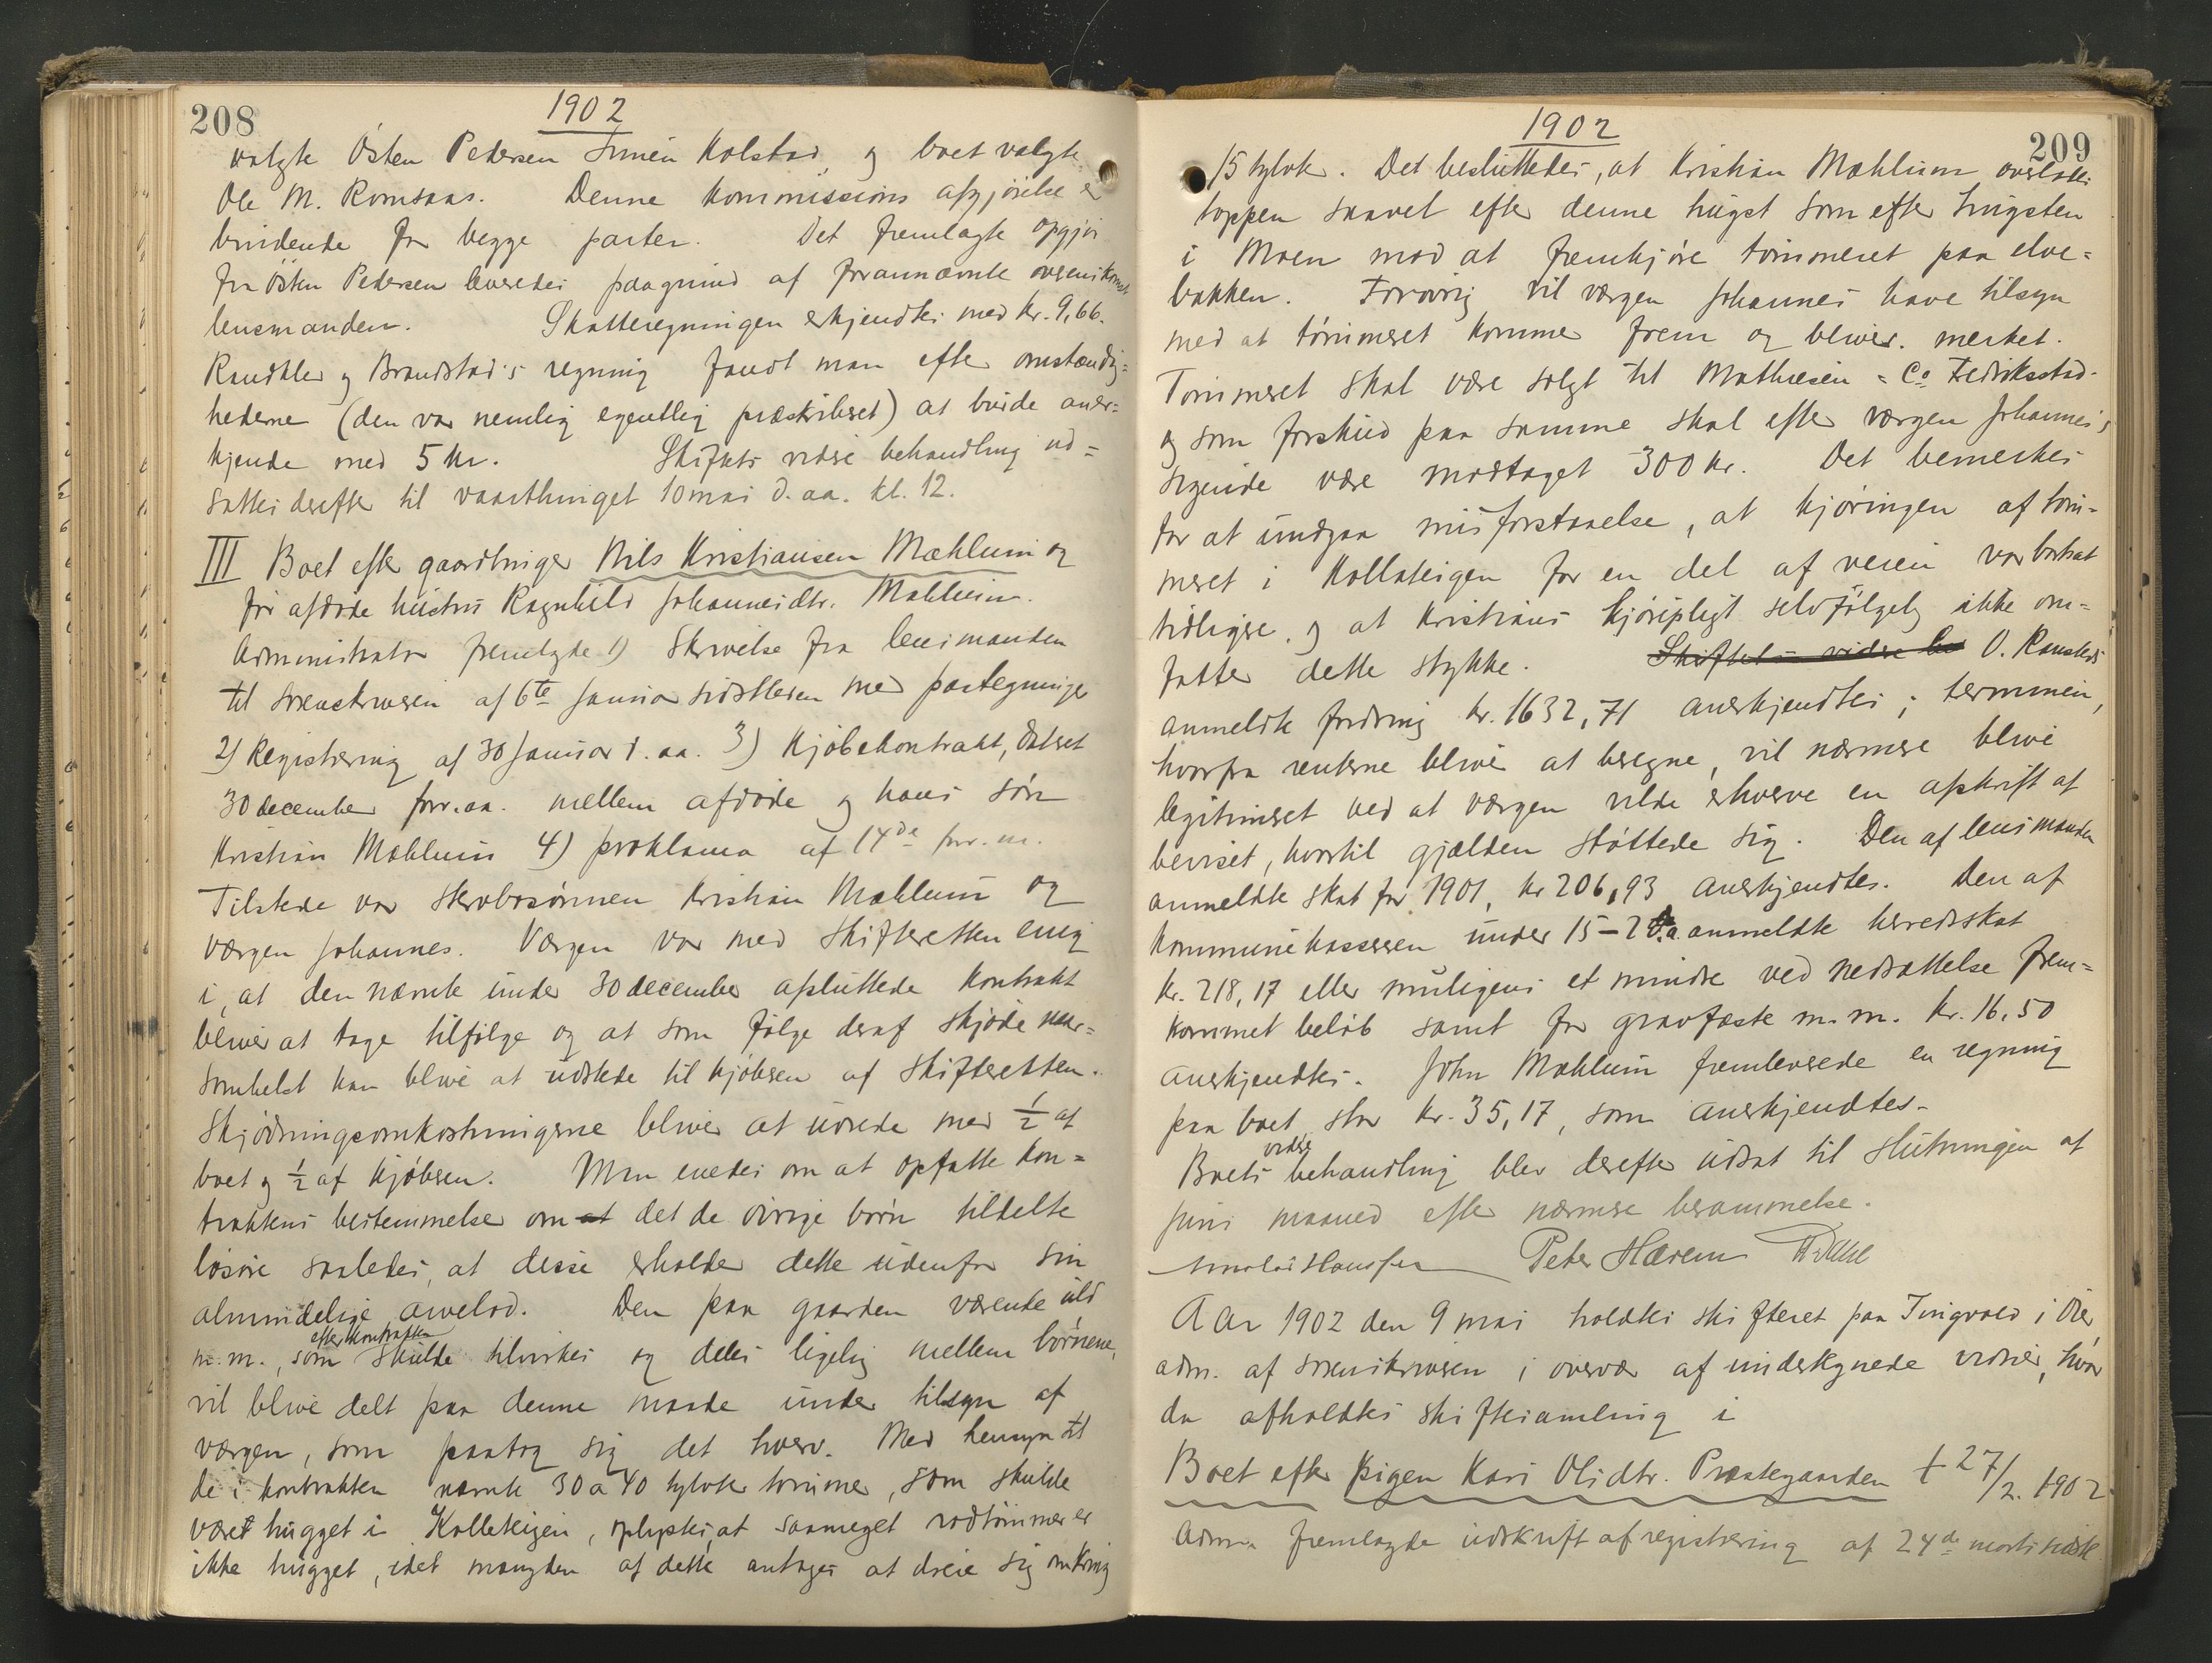 208
1902
valgte Østen Pedersen Simen Kolstad, og boet valgte
Ole M. Romsaas. Denne kommissions afgjørelse er
bindende for begge parter. Det fremlagte opgjør
fra Østen Pedersen leveredes paagrund af forannævnte overenskomst
lensmanden. Skatteregningen erkjendtes med kr. 9,66.
Randklev og Brandstad's regning fandt man efter omstændig=
hederne (den var nemlig egentlig præskriberet) at burde aner=
kjende med 5 kr. Skiftets videre behandling ud=
sattes derefter til vaarthinget 10 mai d. aa. kl. 12.
III Boet efter gaardbruger Nils Kristiansen Mæhlum og
før afdøde hustru Ragnhild Johannesdtr. Mæhlum.
Administrator fremlagde 1) Skrivelse fra lensmanden
til sorenskriveren af 6te januar sidstleden med paategninger
2) Registrering af 30 januar d. aa. 3) Kjøbekontrakt, dateret
30 december forr. aa. mellem afdøde og hans søn
Kristian Mæhlum 4) proklama af 14de forr. m.
Tilstede var stervbosønnen Kristian Mæhlum og
værgen Johannes. Værgen var med skifteretten enig
i, at den nævnte under 30 december afsluttede kontrakt
bliver at tage tilfølge og at som følge deraf skjøde naar=
somhelst kan blive at udstede til kjøberen af skifteretten.
Skjødningsomkostningerne bliver at udrede med ½ af
boet og ½ af kjøberen. Man enedes om at opfatte kon=
traktens bestemmelse om at det de øvrige børn tildelte
løsøre saaledes, at disse erholder dette udenfor sin
almindelige arvelod. Den paa gaarden værende uld
efter kontrakten
m. m., som skulde tilvirkes og deles ligelig mellem børnene,
vil blive delt paa denne maade under tilsyn af
værgen, som paatog sig det hverv. Med hensyn til
de i kontrakten nævnte 30 a 40 tylvter tømmer, som skulde
været hugget i Kolleteigen, oplystes, at saameget rodtømmer er
ikke hugget, idet mængden af dette antages at dreie sig omkring
1902
209
15 tylvter. Det besluttedes, at Kristian Mæhlum overlodes
toppen saavel efter denne hugst som efter hugsten
i Moen mod at fremkjøre tømmeret paa elve=
bakken. Forøvrig vil værgen Johannes have tilsyn
med at tømmeret kommer frem og bliver merket.
Tømmeret skal være solgt til Mathiesen & Co Fredriksstad
og som forskud paa samme skal efter værgen Johannes's
sigende være modtaget 300 kr. Det bemerkes
for at undgaa misforstaaelse, at kjøringen af tøm=
meret i Kollateigen for en del af veien var bortsat
tidligere, og at Kristians kjørepligt selvfølgelig ikke om=
fatter dette stykke. Skiftets videre be O. Ransteds
anmeldte fordring kr. 1632,71 anerkjendtes; terminen,
hvorfra renterne bliver at beregne, vil nærmere blive
legitimeret ved at værgen vilde erhverve en afskrift af
beviset, hvortil gjælden støttede sig. Den af lensmanden
anmeldte skat for 1901, kr 206,93 anerkjendtes. Den af
kommunekassereren under 15-2 d.a. anmeldte herredsskat
kr. 218,17 eller muligens et mindre ved nedsættelse frem=
kommet beløb samt for gravfæste m. m. kr. 16,50
anerkjendtes. John Mæhlum fremleverede en regning
paa boet stor kr. 35,17, som anerkjendtes.
videre
Boets behandling blev derefter udsat til slutningen af
juni maaned efter nærmere berammelse.
Peter Hærem
Aar 1902 den 9 mai holdtes skifteret paa Tingvold i Øier,
adm. af sorenskriveren i overvær af undertegnede vidner, hvor
da afholdtes skiftesamling i
Boet efter pigen Kari Olsdtr. Præstegaarden † 27/2. 1902
Adm. fremlagde udskrift af registrering af 24de marts sidstl.